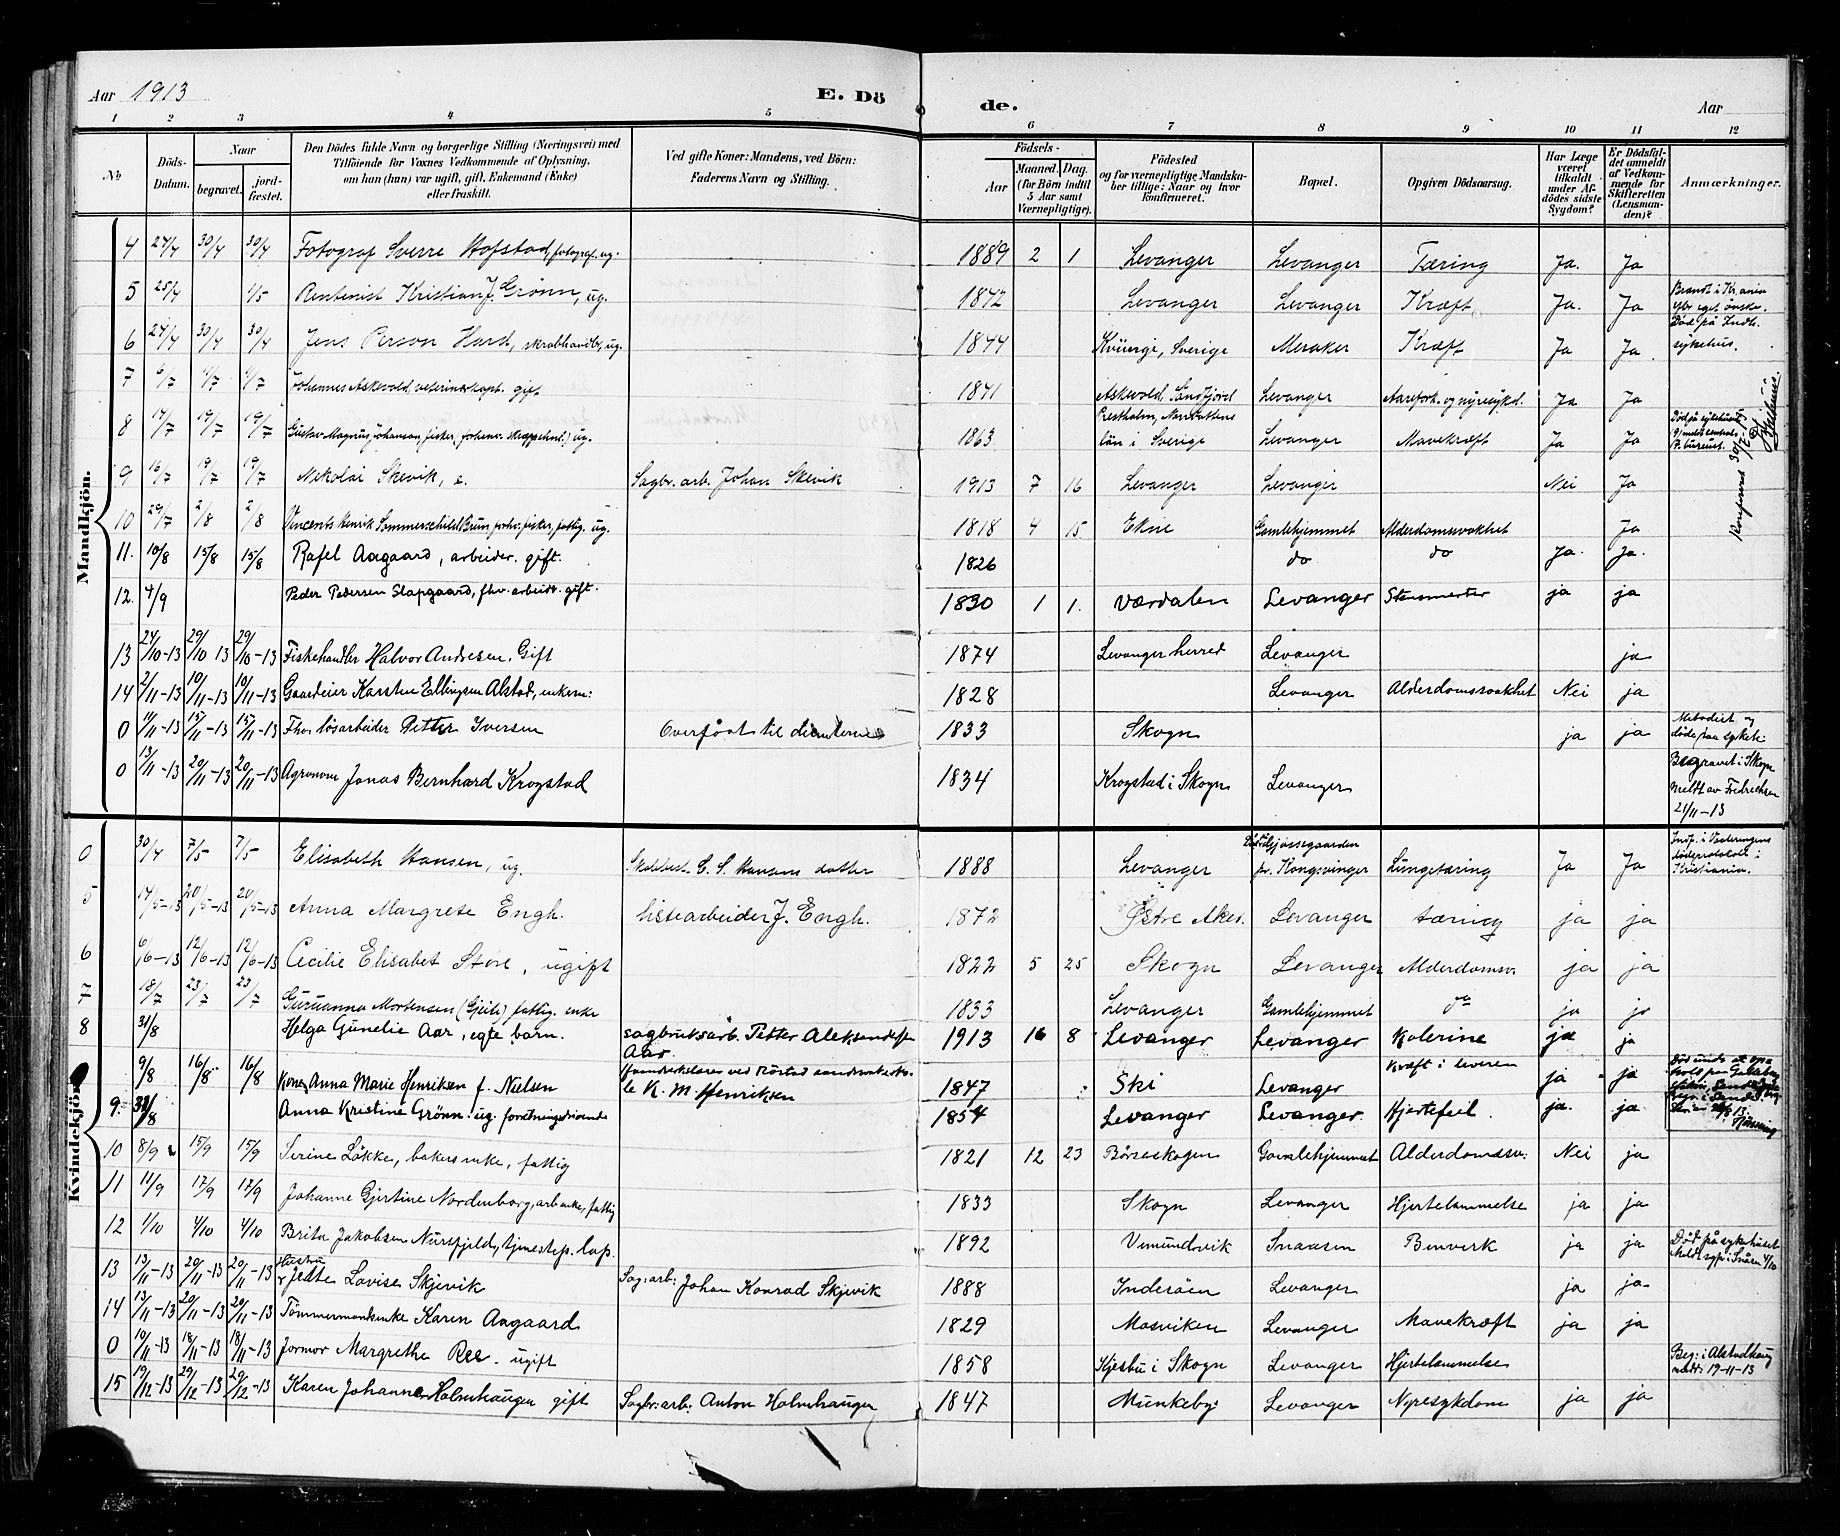 Aar 1913
E. Dö
de.
Aar
1 2 3 4 5 6 7 8 9 10 11 12
No
Döds-Datum.
Naar
begravet. jordfæstet.
Den Dödes fulde Navn og borgerlige Stilling (Næringsvei) med
Tilföiende for Voxnes Vedkommende af Oplysning,
om han (hun) var ugift, gift, Enkemand (Enke)
eller fraskilt.
Ved gifte Koner: Mandens, ved Börn:
Faderens Navn og Stilling.
Födsels-
Aar
Maaned. Dag.
(for Börn indtil
5 Aar samt
Værnepligtige).
Födested
og for værnepligtige Mandska-
ber tillige: Naar og hvor
konfirmeret.
Bopæl.
Opgiven Dödsaarsag.
Har Læge
været
tilkaldt
under Af-
dödes sidste
Sygdom?
Er Dödsfal-
det anmeldt
af Vedkom-
mende for
Skifteretten
(Lensman-
den)?
Anmærkninger.
Mandkjön.
4 24/4 30/4 30/4 Fotograf Sverre Hofstad, fotograf. ug. 1889 2 1 Levanger Levanger Tæring Ja. Ja
5 25/4 1/5 Rentenist Kristian J. Grönn, ug. 1842 Levanger Levanger Kræft Ja. Ja Brændt i Kr.ania
6 24/4 30/4 30/4 Jens Person Hard, skrabhandler, ug. 1844 Sverige Meraker Kræft Ja Ja. Død på Indh. sykehus.
7 6/7 Johannes Askevold, veterinærkapt. gift 1841 Askevold, Søndfjord Levanger Aarefork. og nyresykd. Ja Ja
8 14/7 19/7 19/7 Gustav Magnus Johanson, fisker, ug. 1863 län i Sverige Levanger Mavekræft Ja Ja
9 16/7 19/7 19/7 Nikolai Skevik, e. Sagbr. arb. Johan Skevik 1913 7 16 Levanger Levanger Nei Ja
10 29/7 2/8 2/8 Vincents Henrik Sommerschild Bum, fisker, fattig. ug. 1818 4 15 Ekne Gamlehjemmet Alderdomssvakhet Ja
11. 10/8 15/8 15/8 Rafel Aagaard, arbeider. gift. 1826 do do Ja. Ja.
12. 4/9 Peder Pedersen Slapgaard, fhv. arbeidr. gift. 1830 1 1. Værdalen Levanger ja ja
13 24/10-13 29/10 13 29/10-13 Fiskehandler Halvor Andresen. Gift 1874 Levanger herred Levanger ja
14 2/11-13 10/11-13 10/11-13 Gaardeier Karsten Ellingsen Alstad, enkem: 1828 Levanger Alderdomssvakhet Nei ja
0 11/11-13 15/11-13 15/11-13 Fhv. lösarbeider Petter Iversen Overfört til dissenterne 1833 Skogn ja ja Metodist og döde paa sykeh.
0 13/11-13 20/11-13 20/11-13 Agronom Jonas Bernhard Krogstad 1834 Krogstad i Skogn Levanger Begravet i Skogn
meldt av Fredrichsen
21/11-13
Konfereret 30/7 15
Kvindekjön.
0 30/4 7/5 7/5 Elisabeth Hansen, ug. Skolebest. C. S. Hansens datter 1888 Levanger pr. Kongsvinger Lungetæring Ja Ja Indf. i Vaalerengens dödsprotokol i Kristiania.
5 14/5-13 20/5-13 20/5-13 Anna Margrete Engh. listearbeider J. Engh. 1872 Østre Aker. Levanger tæring ja ja
6 6/6-13 12/6-13 12/6-13 Cecilie Elisabet Støre, ugift 1822 5 25 Skogn Levanger Alderdomsv. ja ja
7 18/7 23/7 23/7 Guruanna Mortensen (Gjeite) fattig. enke 1833 Levanger Gamlehjemmet do ja ja
8 31/8 Helga Gunelie Aar, egte barn. sagbruksarb. Petter Aleksander
Aar. 1913 16 8 Levanger Levanger Kolerine ja ja
9/8 16/8 16/8 Kone Anna Marie Henriksen f. Nielsen K. M. Henriksen 1847 Ski Levanger Kræft i leveren ja ja
9. 31/8 Anna Kristine Grönn. ug. forretningsdrivende 1854 Levanger Levanger. Hjertefeil. ja. ja
10 8/9 15/9 15/9 Serine Løkke, bakers enke, fattig 1821 12 23 Börseskogen Gamlehjemmet Alderdomssv: Nei ja
11 11/9 17/9 17/9 Johanne Gjertine Nordenborg, arb enke, fattig 1833 Skogn Levanger Hjertelammelse ja ja
12 1/10 4/10 4/10 Brita Jakobsen Nursfjeld, tjenestep. lap. 1892 Vemundvik Snaasen Benverk ja ja Död på sykehuset
13 13/11-13 20/11-13 20/11-13 Hustru
Jette Lovise Skjevik Sag: arb: Johan Konrad Skjevik 1888 Inderöen Levanger ja ja
14 13/11-13 20/11-13 20/11-13 Tömmermandsenke Karen Aagaard 1829 Mosviken Levanger Mavekræft ja ja
0 10/11-13 18/11-13 18/11-13 Jormor Margrethe Ree. ugift 1858 Kjesbu i Skogn Levanger Hjertelammelse Beg: i Alstadhaug
meddt 19-11-13
15 19/12-13 29/12-13 29/12-13 Karen Johanne Holmhaugen gift Sagbr: arb: Anton Holmhaugen 1847 Munkeby Levanger Nyresykdom ja ja